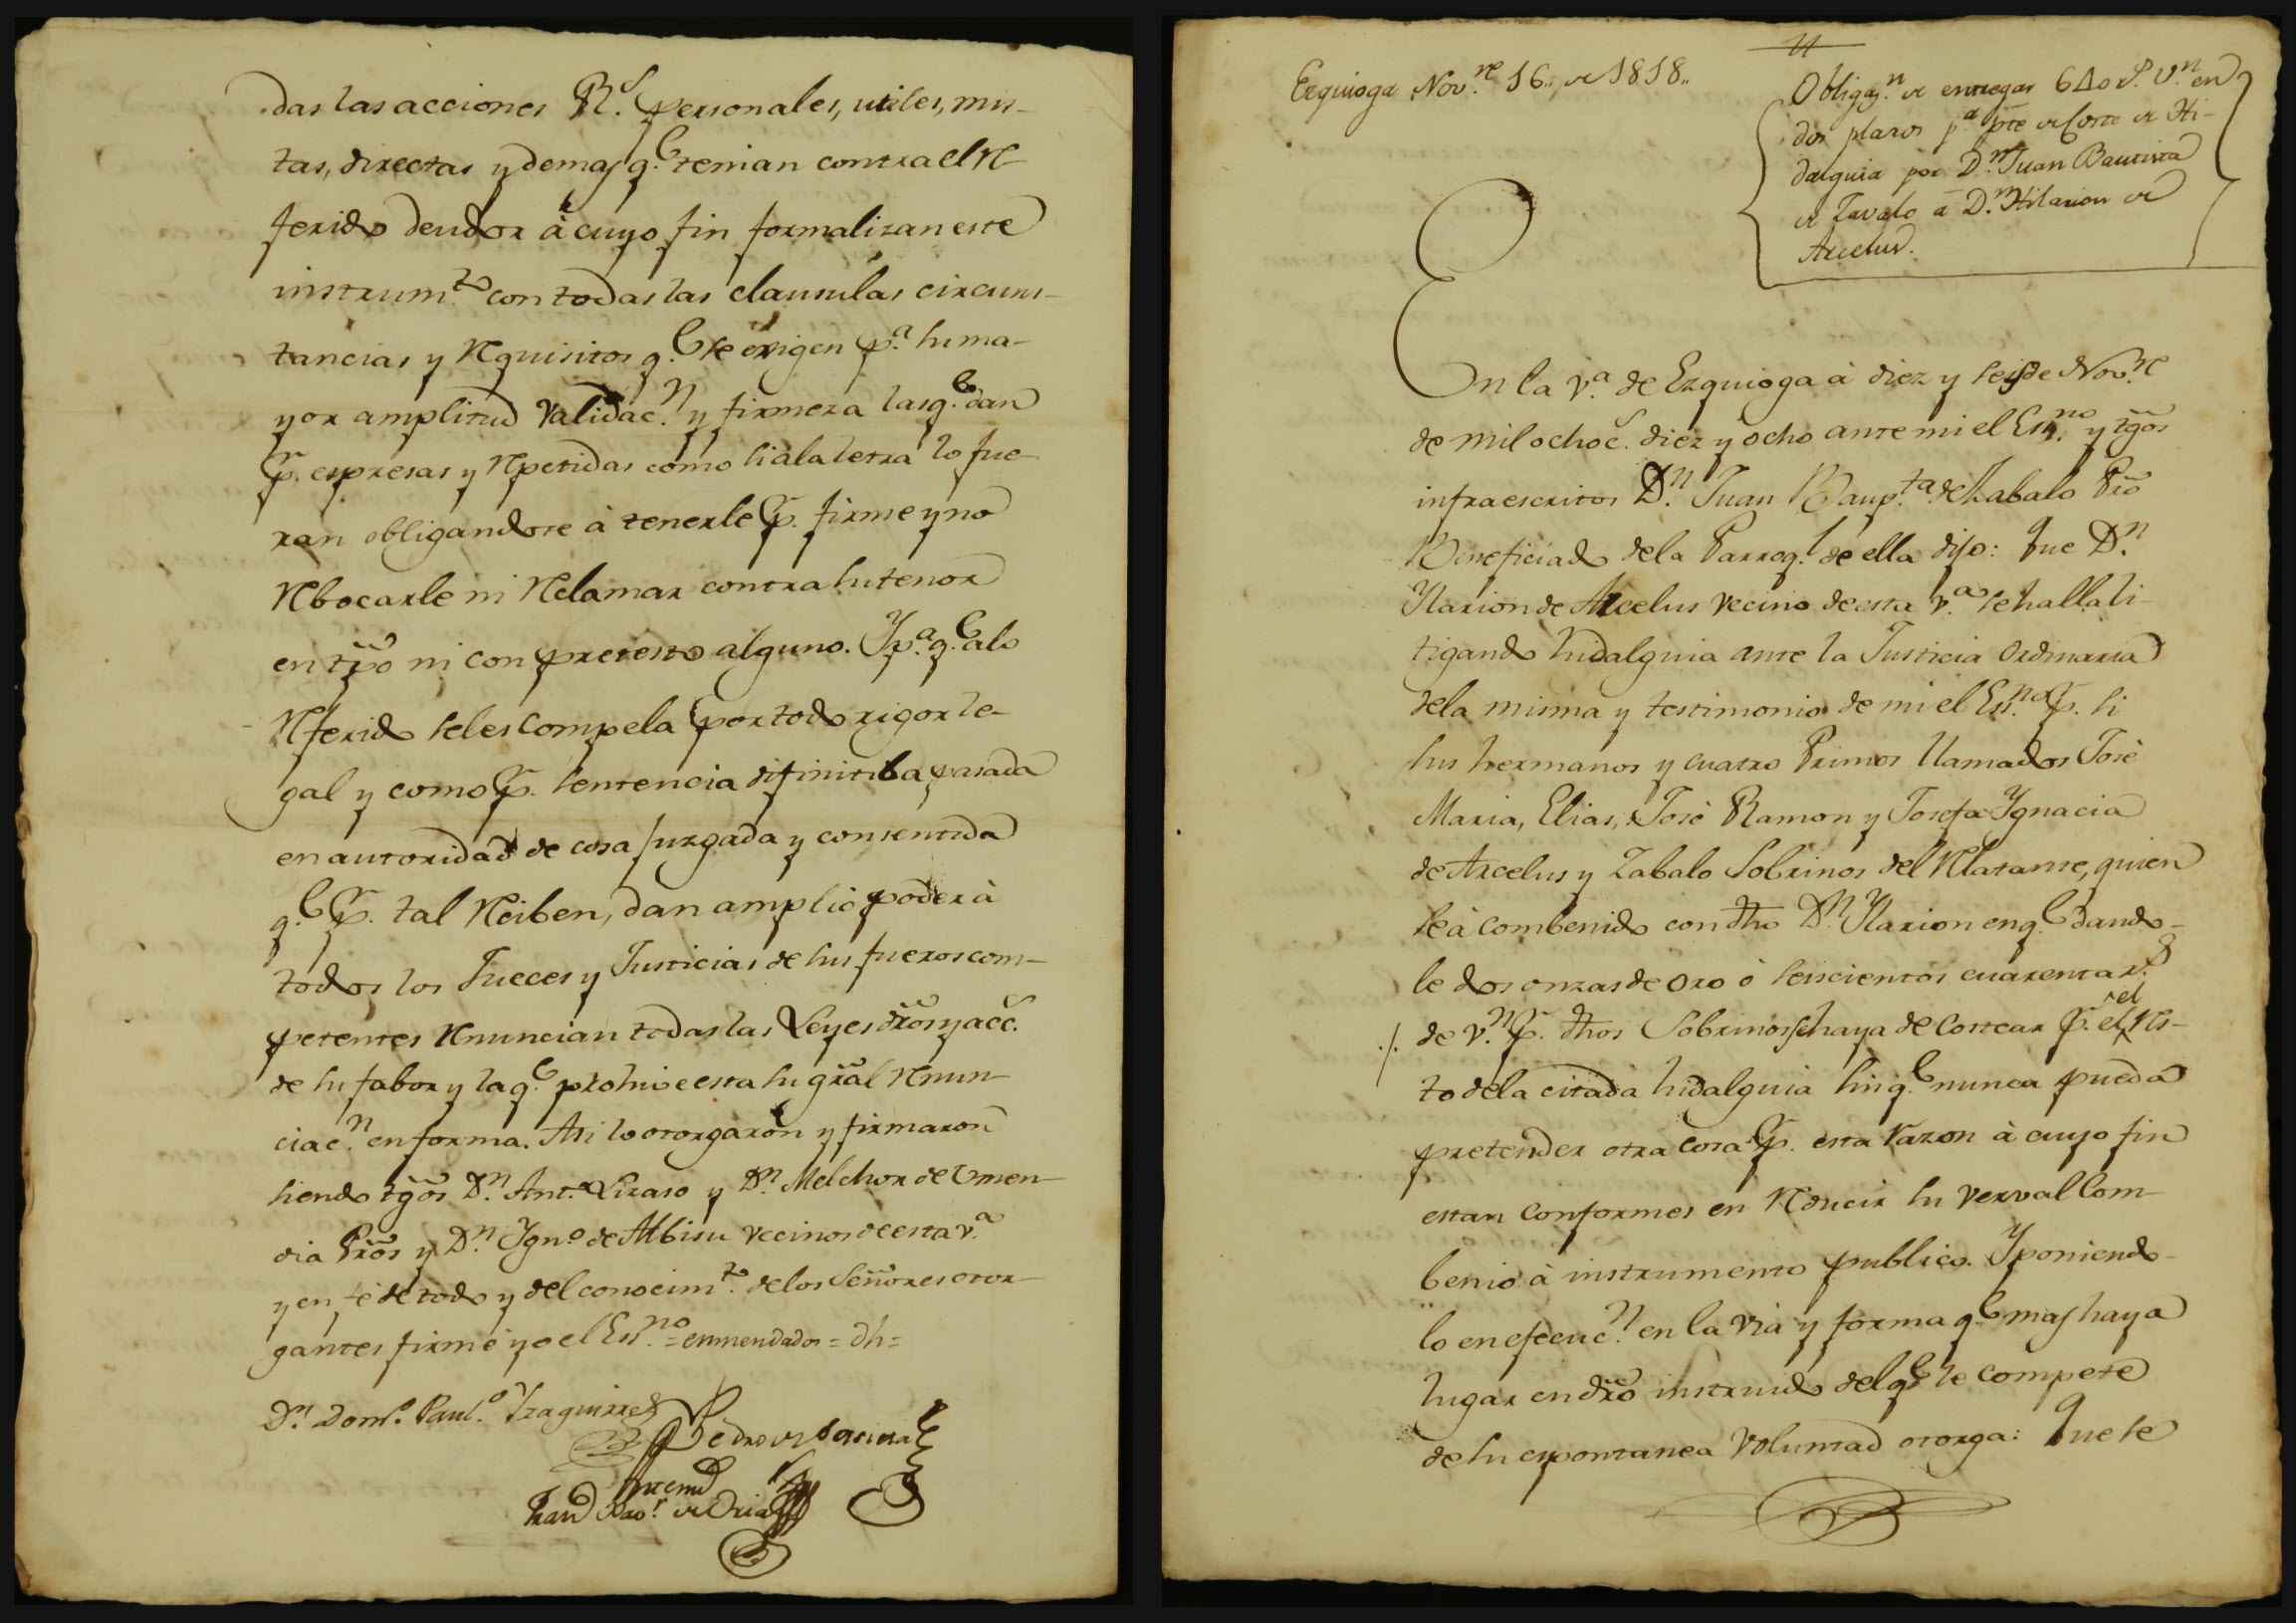 das las acciones R.s personales, utiles, mis-
tas, directas y demas q.e tenian contra el re-
ferido deudor à cuyo fin formalizan este
instrum.to con todas las clausulas circuns-
tancias y requisitos q.e se exigen p.a su ma-
yor amplitud validac.n y firmeza las q.e dan
p.r expresas y repetidas como si a la letra lo fue-
ran obligandose à tenerle p.r firme y no
rebocarle ni reclamar contra su tenor
en tpo ni con pretesto alguno. Y p.a q.e a lo
referido se les compela por todo rigor le-
gal y como p.r sentencia difinitiba pasada
en autoridad de cosa juzgada y consentida
q.e p.r tal reciben, dan amplio poder à
todos los Jueces y Justicias de sus fueros com-
petentes renuncian todas las Leyes dros y acc.
de su fabor y la q.e prohive esta su gral renun-
ciac.n en forma. Asi lo otorgaron y firmaron
siendo tgos D.n Ant.o Lizaso y D.n Melchor de Umen-
dia Pros y D.n Ygn.o de Albisu vecinos de esta v.a
y en fé de todo y del conocim.to de los Señores otor-
gantes firmé yo el Ess.no = enmendados = dh =
D.n Dom.o Paul.o Yzaguirre
Pedro de
Antemi
Fran.co Xav.r de Oria
Ezquioga Nov.re 16,, de 1818,,
Obligaz.n de entregar 640 r.s v.n en
dos plazos p.a pte de Coste de Hi-
dalguia por D.n Juan Bautista
de Zavalo a D.n Hilarion de
Arcelus.
En la v.a de Ezquioga à diez y seis de Nov.re
de mil ochoc.s diez y ocho ante mi el Ess.no y tgos
infraescritos D.n Juan Baup.ta de Zabalo Pro
Beneficiado de la Parroq.l de ella dijo: Que D.n
Ylarion de Arcelus vecino de esta v.a se halla li-
tigando hidalguia ante la Justicia Ordinaria
de la misma y testimonio de mi el Ess.no p.r si
sus hermanos y cuatro Primos llamados José
Maria, Elias, José Ramon y Josefa Ygnacia
de Arcelus y Zabalo Sobrinos del relatante, quien
se à combenido con dho D.n Ylarion en q.e dando-
le dos onzas de oro ò seiscientos cuarenta r.s
de v.n p.r dhos Sobrinos se haya de costear p.r el res-
to de la citada hidalguia sin q.e nunca pueda
pretender otra cosa p.r esta razon à cuyo fin
estan conformes en reducir su verval com-
benio à instrumento publico. Y poniendo-
lo en efecuc.n en la via y forma q.e mas haya
lugar en dro instruido del q.e le compete
de su espontanea voluntad otorga: Que se